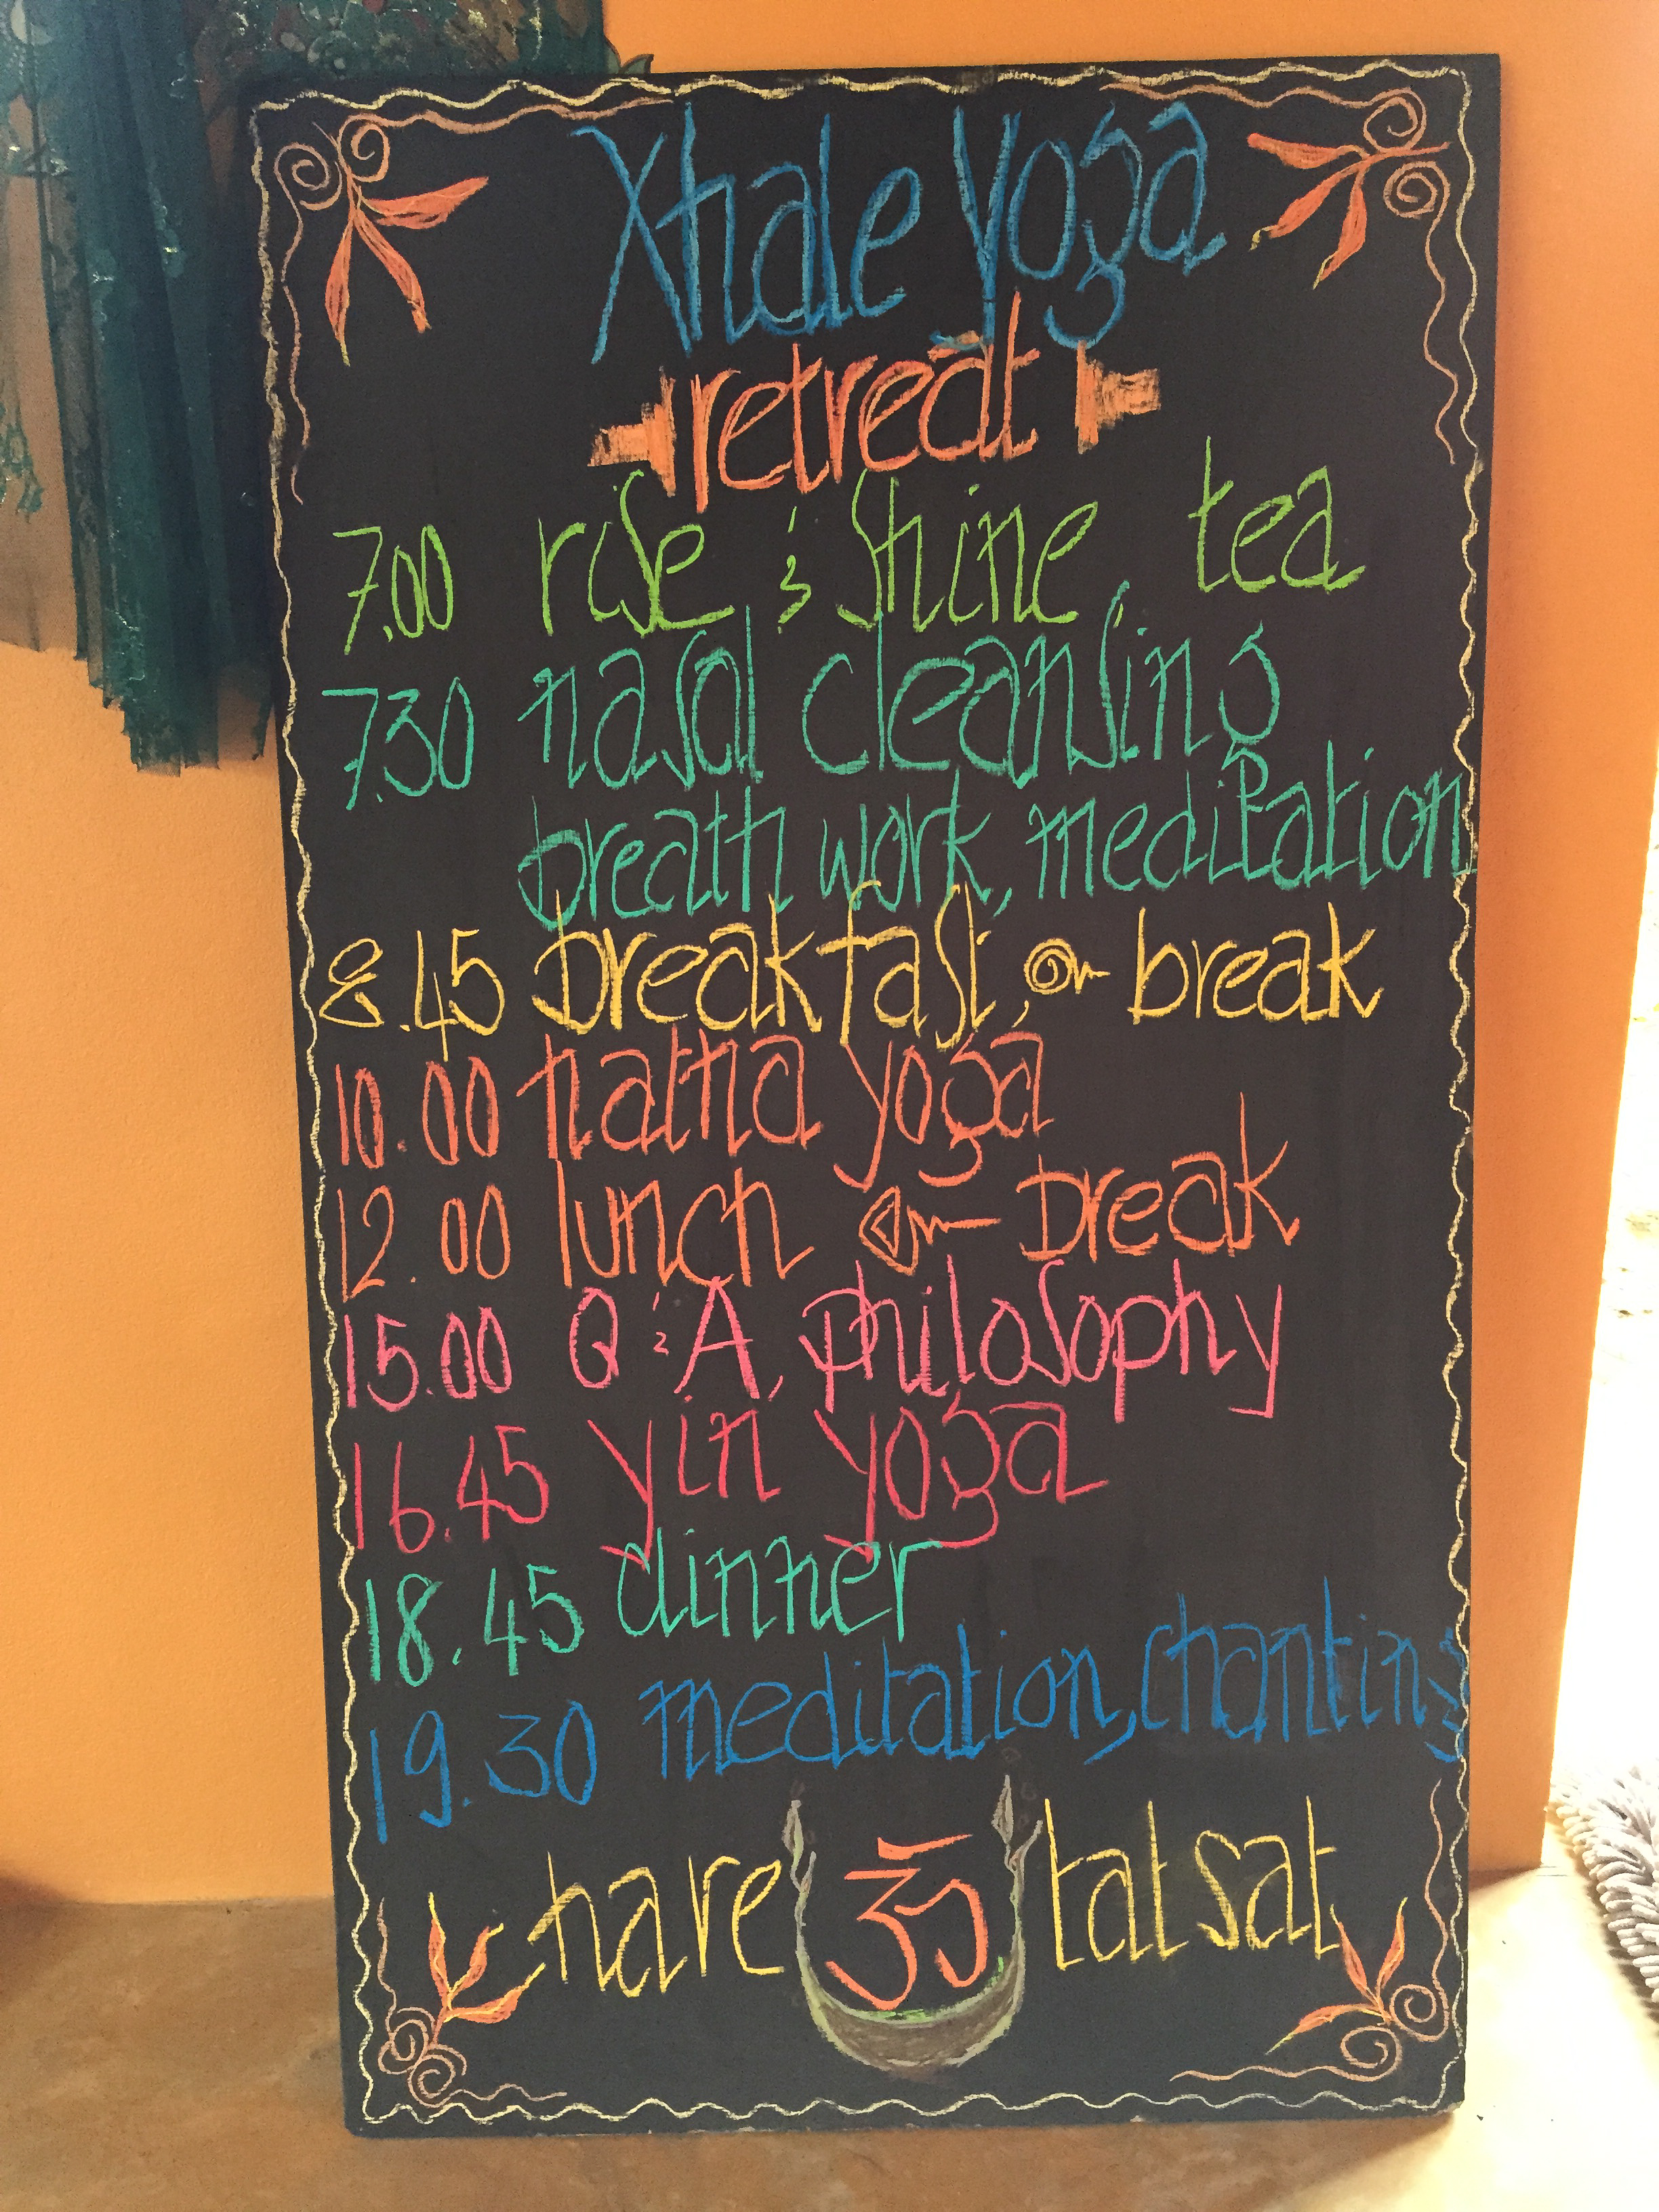 Xhale yoga
retreat
7.00 rise & shine, tea
7.30 nasal cleansing
breath work, meditation
8.45 breakfast, break
10.00 hatha yoga
12.00 lunch break
15.00 Q & A, philosophy
16.45 yin yoga
18.45 dinner
19.30 meditation, chanting
hare ॐ tat sat